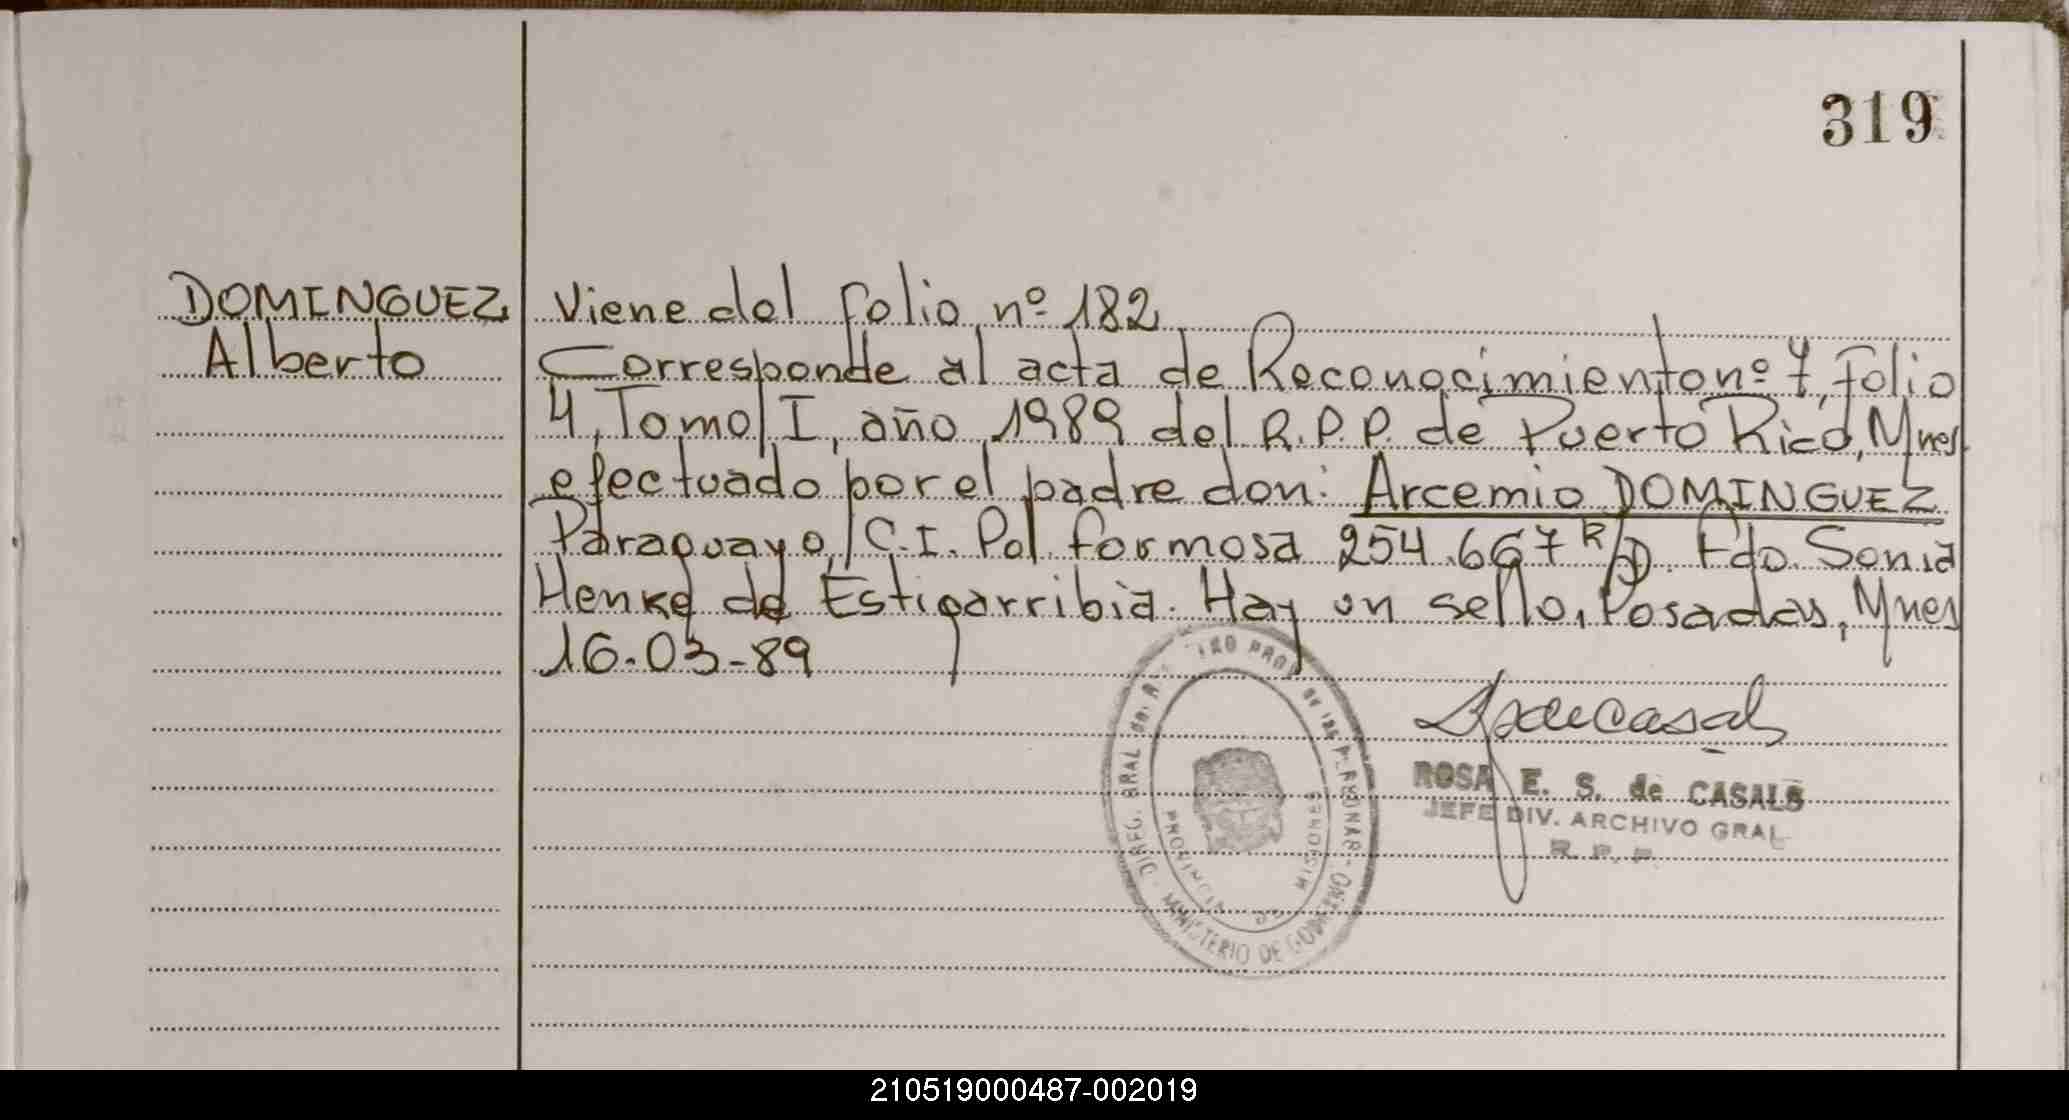 319
DOMINGUEZ
Alberto
Viene del folio nº 182
Corresponde al acta de Reconocimiento nº 7, Folio
4, Tomo I, año 1989 del R.P.P. de Puerto Rico, Mnes
efectuado por el padre don: Arcemio DOMINGUEZ
Paraguayo, C.I. Pol. formosa 254.667 R/D. Fdo. Sonia
Henke de Estigarribia. Hay un sello, Posadas, Mnes
16-03-89
ROSA E. S. de CASALS
JEFE DIV. ARCHIVO GRAL
R. P. P.
PROVINCIA DE MISIONES
MINISTERIO DE
210519000487-002019